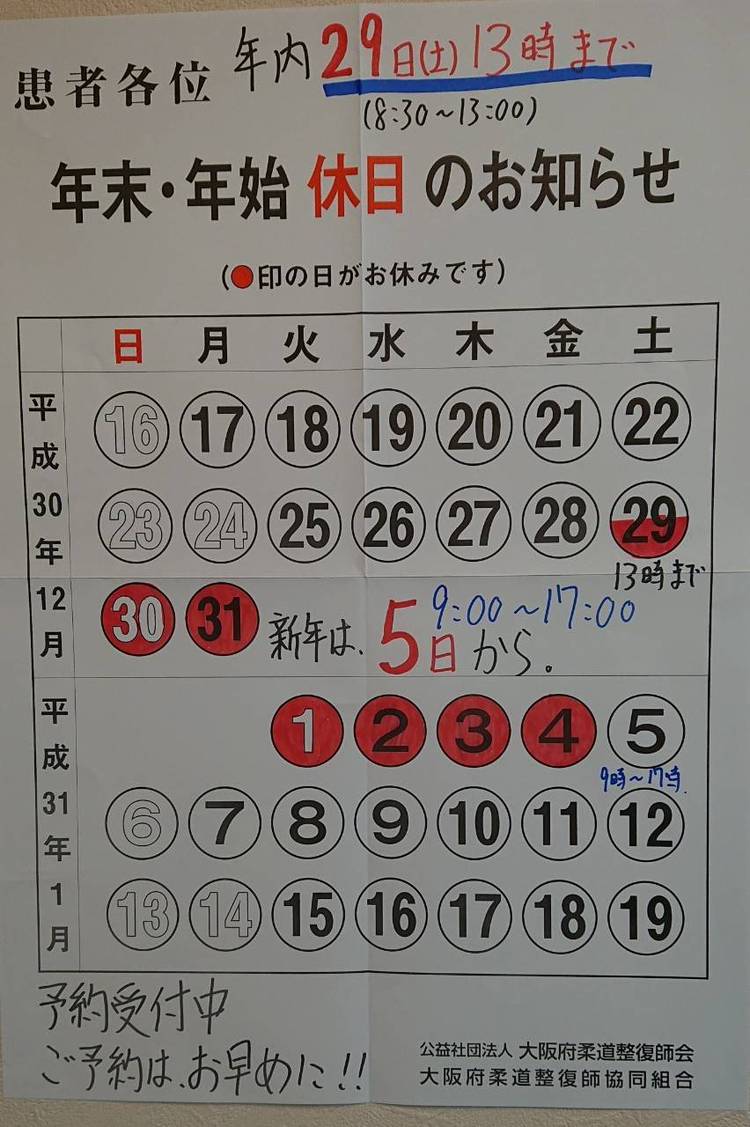 患者各位 年内29日(土)13時まで
(8:30~13:00)
年末・年始 休日 のお知らせ
(●印の日がお休みです)
日 月 火 水 木 金 土
平成30年12月
16 17 18 19 20 21 22
23 24 25 26 27 28 29
13時まで
30 31 新年は、5日から。 9:00~17:00
平成31年1月
1 2 3 4 5
9時~17時
6 7 8 9 10 11 12
13 14 15 16 17 18 19
予約受付中
ご予約は、お早めに!!
公益社団法人 大阪府柔道整復師会
大阪府柔道整復師協同組合